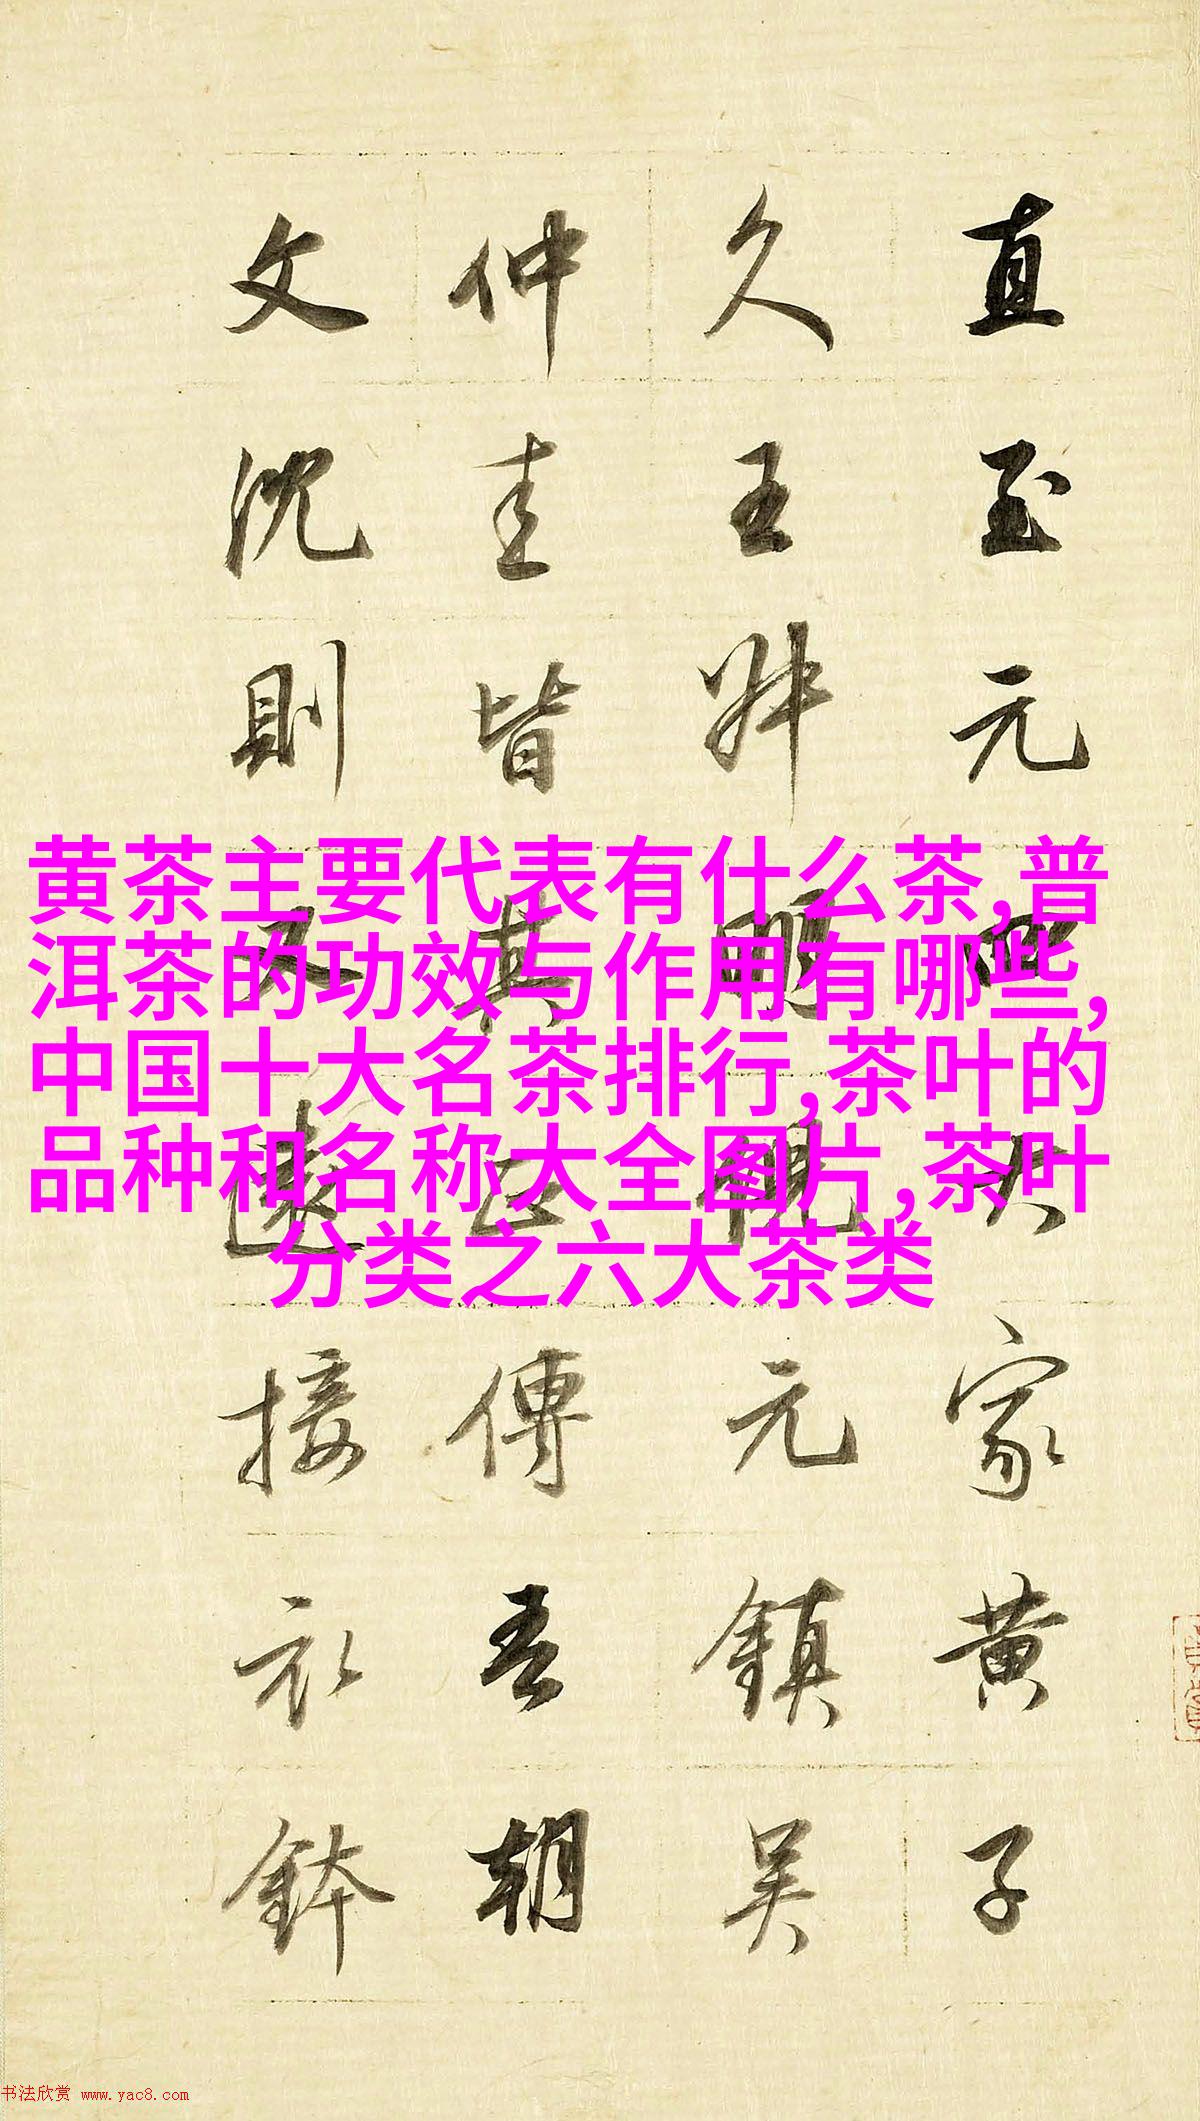 直至元四大家黄子
久王叔明倪元鎮吳
仲圭皆其正傳吾朝
文沈則又遠接衣鉢
黄茶主要代表有什么茶,普
洱茶的功效与作用有哪些,
中国十大名茶排行,茶叶的
品种和名称大全图片,茶叶
分类之六大茶类
书法欣赏 www.yac8.com